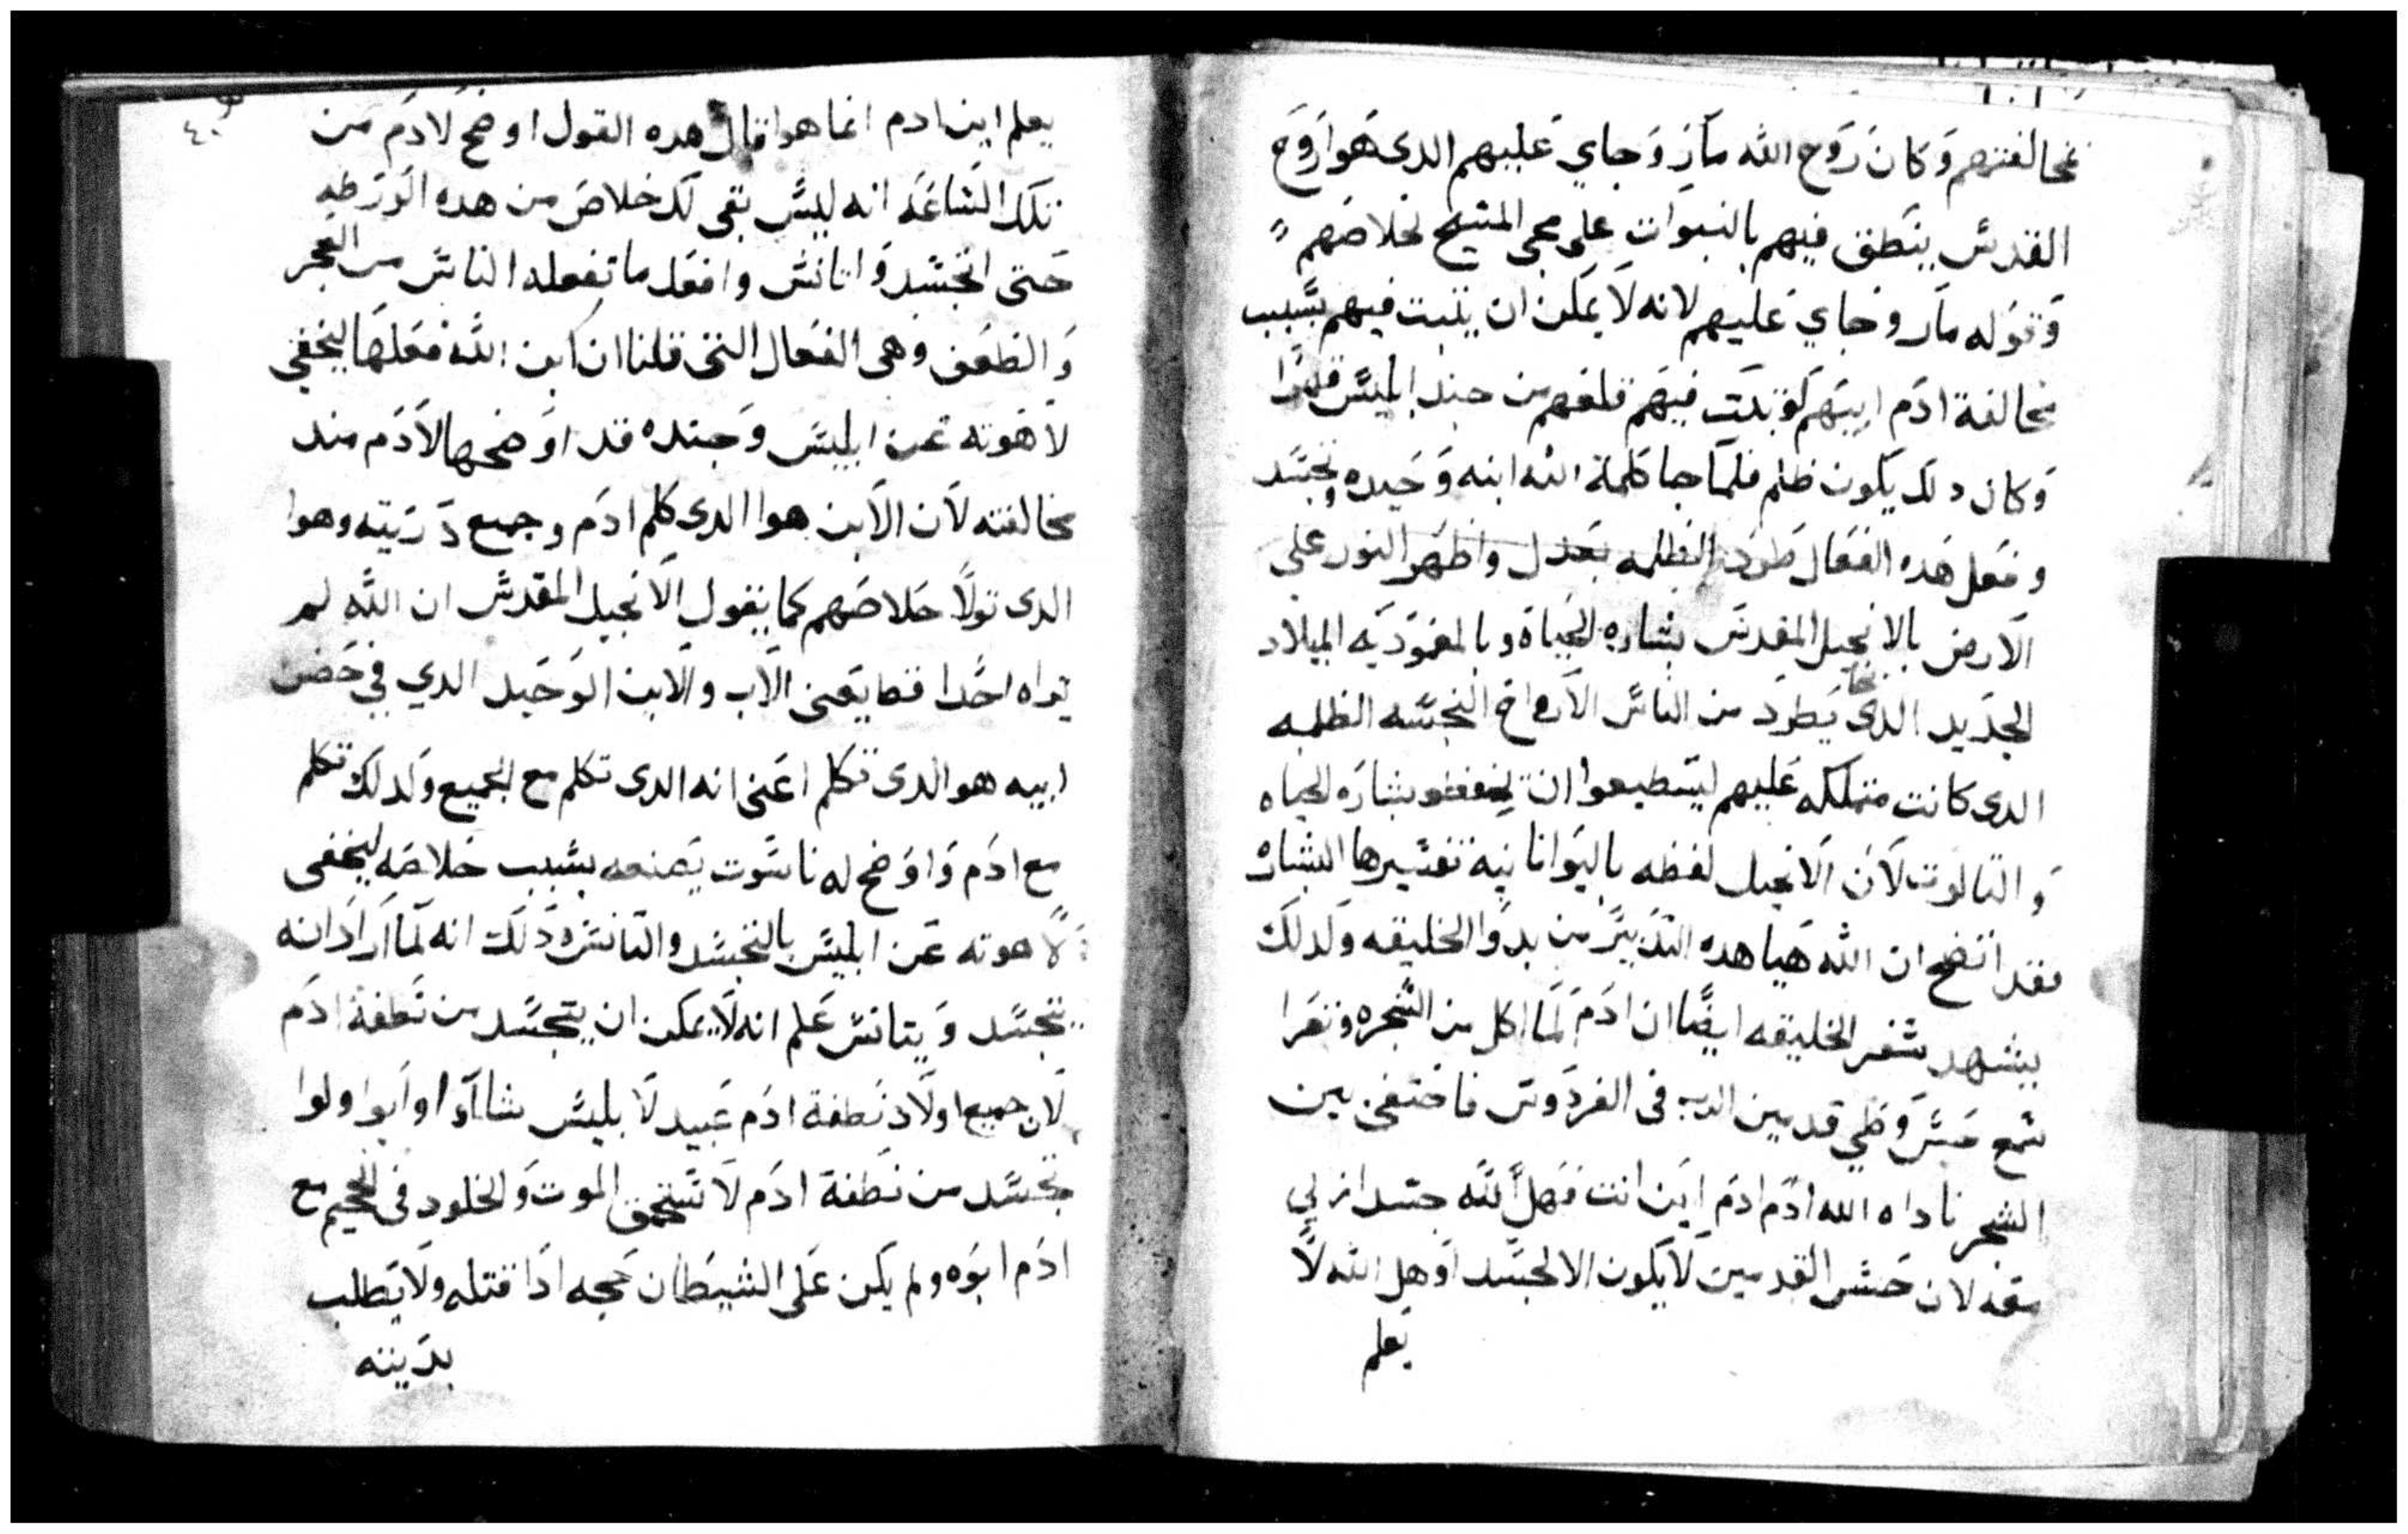 مخالفتهم وَكانَ رَوح الله مآرَ وَجاي عَليهم الدى هَوا رَوح
القدس ينَطق فيهم بالنبوَات على مجى المسَيح لخلاصَهم
وَقوَله مآر وَجاي عَليهم لانه لاَ يمَكن ان يثبت فيهم بسَبب
مخالفة ادَم ابيَهم لوَ ثبتَت فيهَم قلعَهم من جند ابليسَ قهرًا
وَكان دلكَ يَكون ظلم فلمآ جا كلَمة الله ابنه وَحَيده وَتجسَد
وفعَل هَده الفعَال طرَدَ الظلمه بعَدل واظهَر النور على
الاَرض بالانجيل المقدسَ بشارة الحَياة وبالمعَموَديَه الميلاد
الجدَيد الدى يَطردَ من الناسَ الاَرواحَ النجسَه الظلمه
الدى كانت متملكه عَليهم ليسَتطيعوا ان يحفظو بشارَة الحياه
وَالتالوت لاَن الاَنجيل لفظه باليَوانانيَة تفسَيرها البشاره
فقد اتضح ان الله هَيا هده التدَبيرَ من بدوَ الخليقه وَلدلكَ
يشهد سَفر الخليقه ايضًا ان ادَمَ لمَا اكل من الشَجره وتعَرا
سَمع حَسَ وَطي قدمين الرب في الفردَوسَ فاختفى بين
الشجر ناداه الله ادَم ادَم اَين انت فهَل لله جسَد ازلي
معَه لان حَسَ القدمين لاَ يَكون الا لجسَد اوَ هل الله لاَ
يَعلم
٤٠
يعلم اين ادم انما هوا قال هده القول اوضح لاَدَم من
تلكَ السَاعَه انه ليسَ بقى لَك خلاصَ من هده الوَرَطه
حَتى اتجسَد وَاتانسَ وافعَل ما تفعله الناسَ من العجز
وَالضعَف وهى الفعَال التى قلنا ان ابن الله فعَلهَا ليخفي
لاَهَوته عَن ابليسَ وَجنده قد اوَضحها لاَدَم مند
مخالفته لاَن الاَبن هوا الدى كلم ادَم وجميع دَرَيته وهوا
الدى توَلاَ خلاصَهم كما يقول الاَنجيل المقدسَ ان الله لم
يراه احَدا قط يعَنى الاَب والاَبن الوَحَيد الدي في حَضن
ابيه هو الدى تَكلم اعَنى انه الدى تكلم مع الجميع وَلدلكَ تكلم
مع ادَم وَاوَضح له ناسَوت يَصنعه بسَبب خلاصَه ليخفى
لاَهوته عَن ابليسَ بالتجسَد والتانسَ وَدلَك انه لمَا اَرادَ انه
يتجسَد وَيتانسَ عَلم انه لاَ يمكن ان يتجسَد من نَطفة ادَم
لاَن جميع اولاَد نَطفة ادَم عَبيد لاَبليسَ شااَوا اوابَوا ولوا
تجسَد من نَطفة ادَم لاَسَتحق الموت وَالخلود فى الجحيم مع
ادَم ابوَه ولم يكَن عَلى الشيطَان حَجه ادَا قتله ولاَ يَطلب
بدَينه